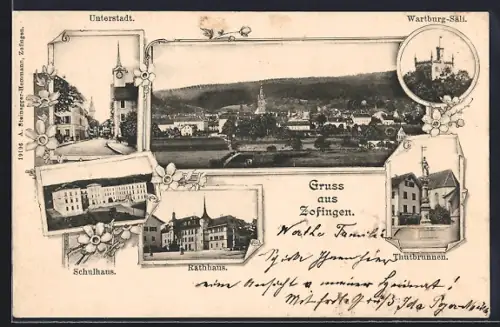 Unterstadt.
Wartburg-Säli.
10136 A. Steinegger-Hemmann, Zofingen.
Gruss
aus
Zofingen.
Schulhaus.
Rathhaus.
Thutbrunnen.
Werthe Familie!
eine Ansicht meiner Heimat!
Mit Gruß Ida